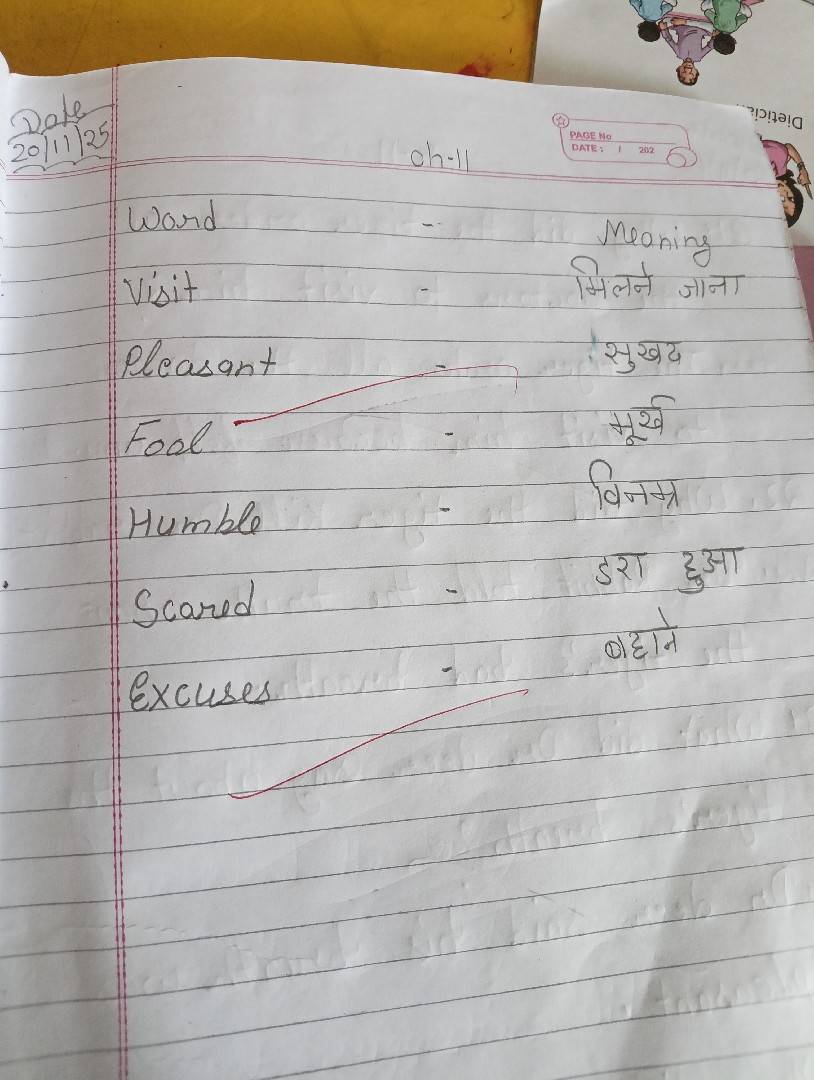 Date
20/11/25
PAGE No
DATE: / 202
Ch-11
Word - Meaning
Visit - मिलने जाना
Pleasant - सुखद
Fool - मूर्ख
Humble - विनम्र
Scared - डरा हुआ
Excuses - बहाने